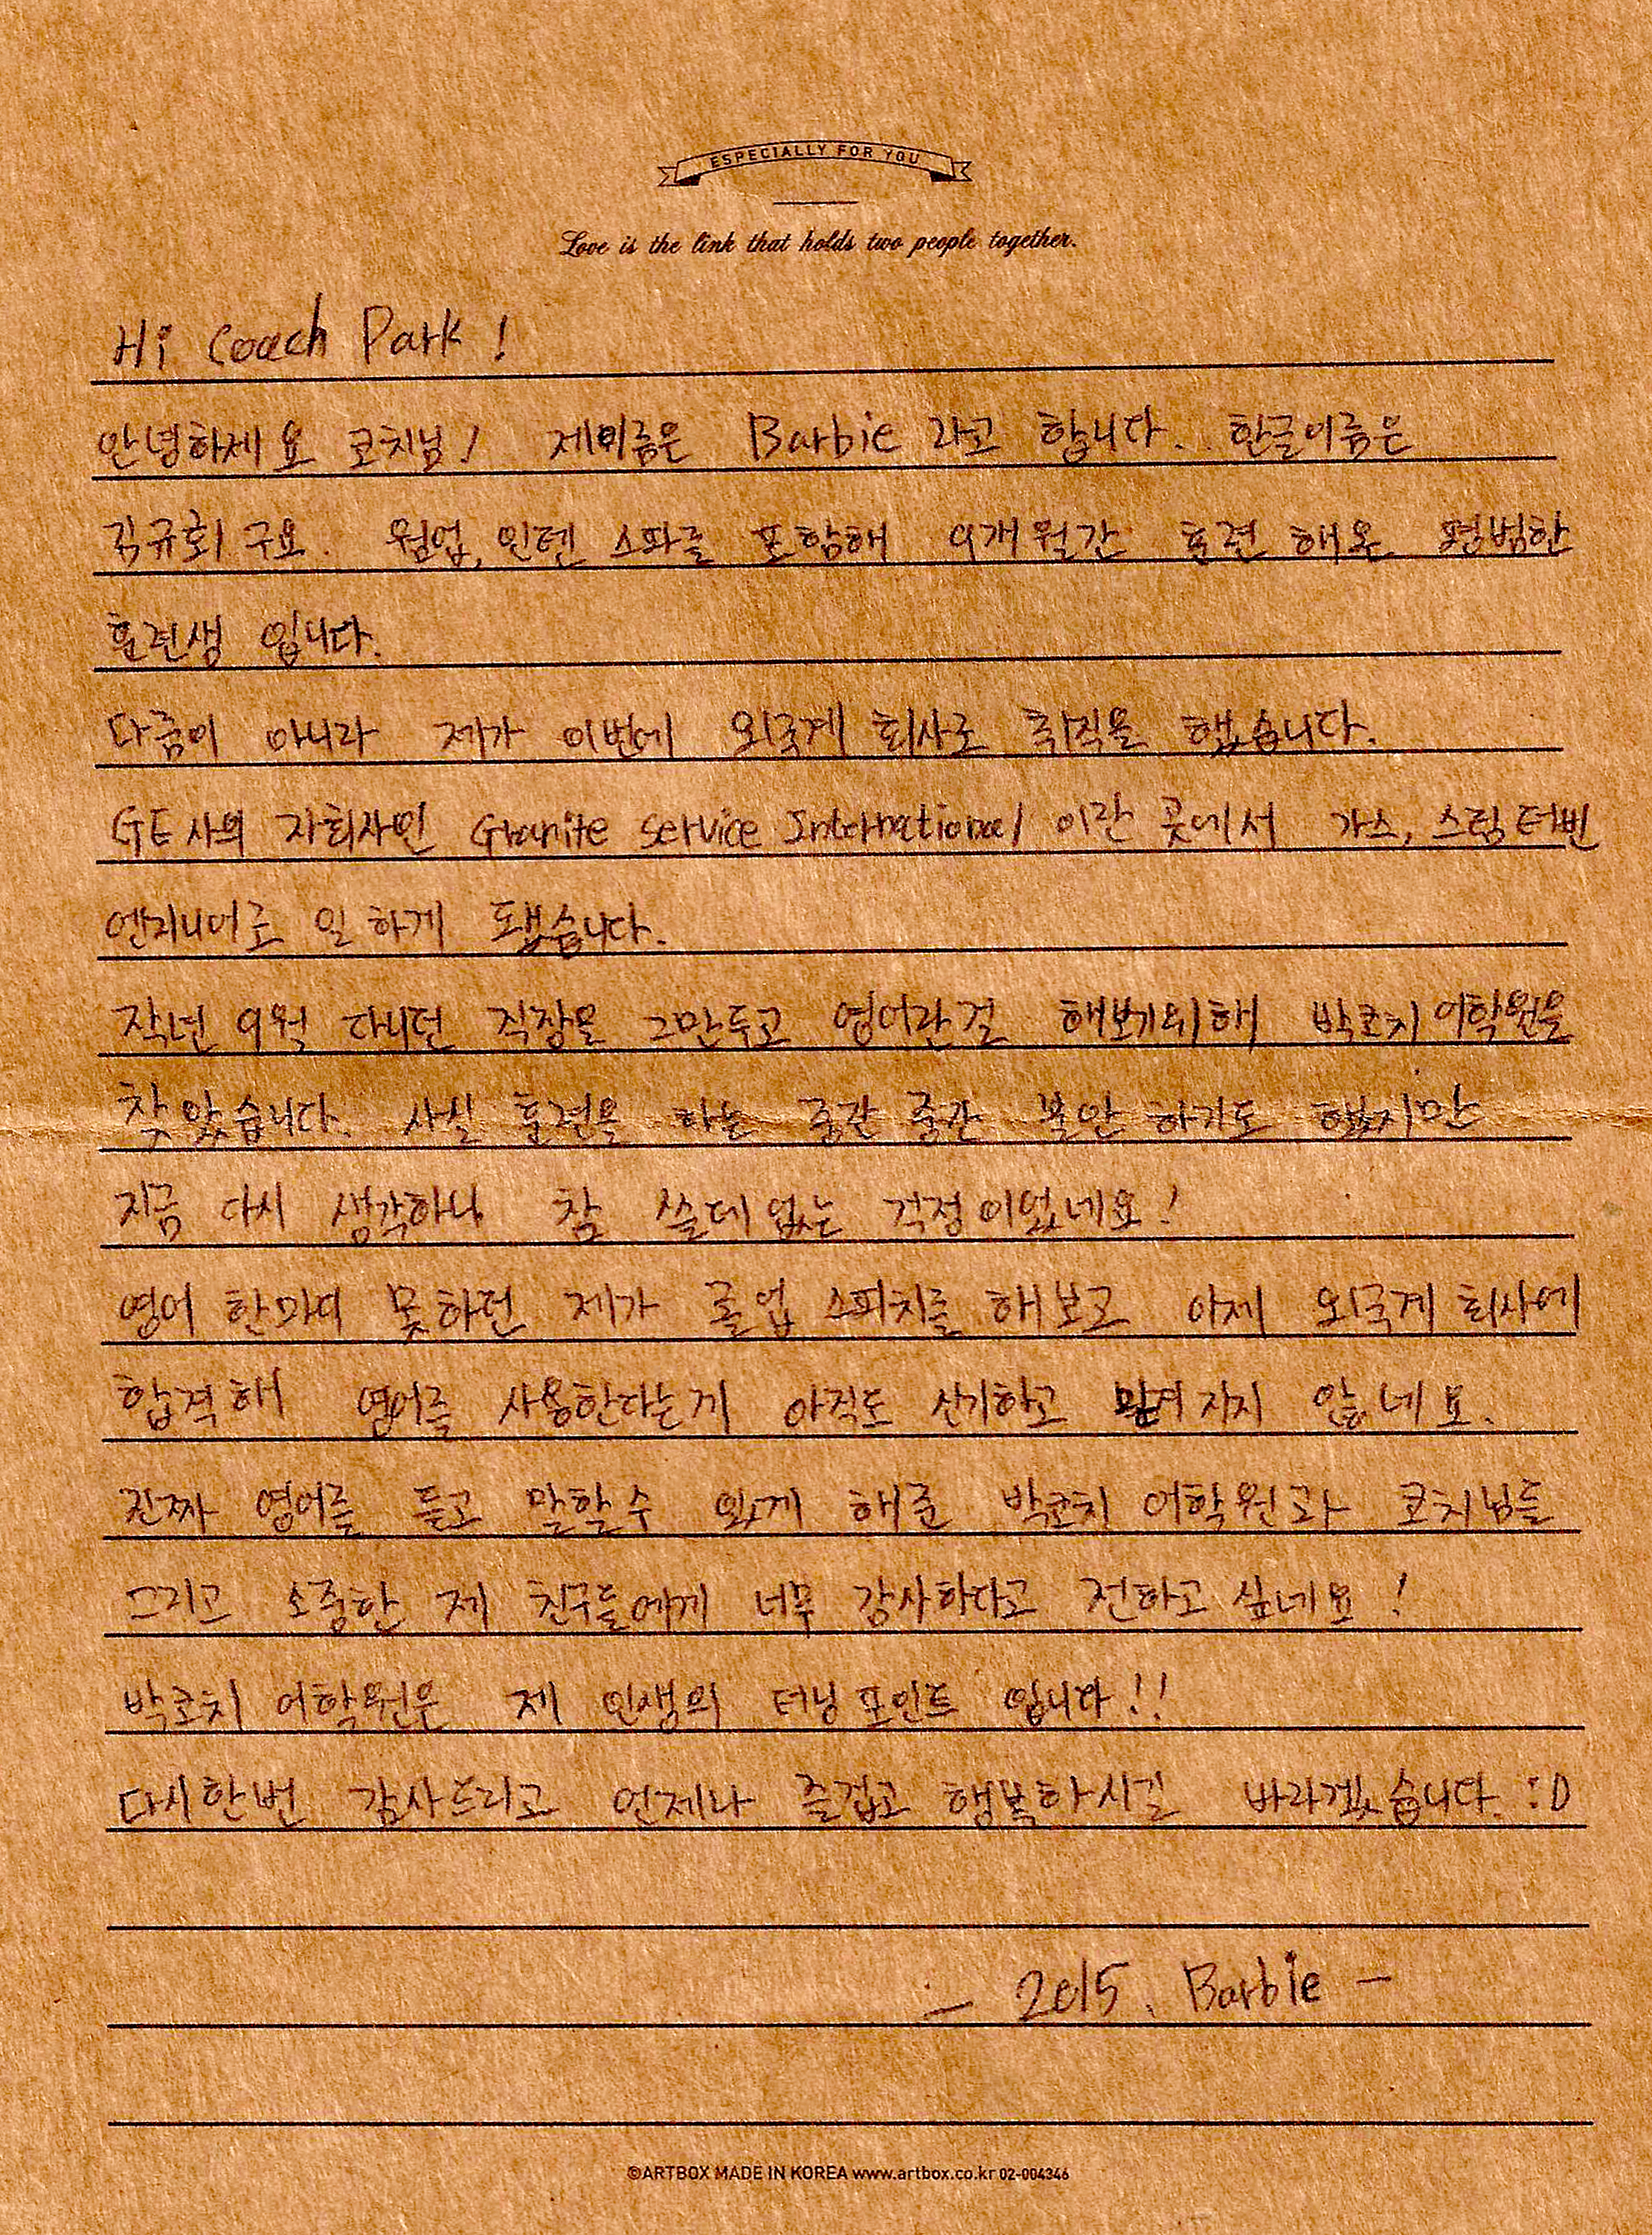 ESPECIALLY FOR YOU
Love is the link that holds two people together.
Hi Coach Park !
안녕하세요 코치님! 제이름은 Barbie 라고 합니다.. 한글이름은
김규회 구요. 웜업, 인텐 스파를 포함해 9개월간 훈련 해온 평범한
훈련생 입니다.
다름이 아니라 제가 이번에 외국계 회사로 취직을 했습니다.
GE사의 자회사인 Granite Service International 이란 곳에서 가스, 스팀터빈
엔지니어로 일 하게 됐습니다.
작년 9월 다니던 직장을 그만두고 영어란걸 해보기위해 박코치 어학원을
찾았습니다. 사실 훈련을 하는 중간 중간 불안 하기도 했지만
지금 다시 생각하니 참 쓸데없는 걱정이었네요!
영어 한마디 못하던 제가 졸업 스피치를 해보고 이제 외국계 회사에
합격해 영어를 사용한다는게 아직도 신기하고 믿겨 지지 않네요.
진짜 영어를 듣고 말할수 있게 해준 박코치 어학원과 코치님들
그리고 소중한 제 친구들에게 너무 감사하다고 전하고 싶네요 !
박코치 어학원은 제 인생의 터닝포인트 입니다!!
다시한번 감사드리고 언제나 즐겁고 행복하시길 바라겠습니다. :D
— 2015. Barbie —
©ARTBOX MADE IN KOREA www.artbox.co.kr 02-004346